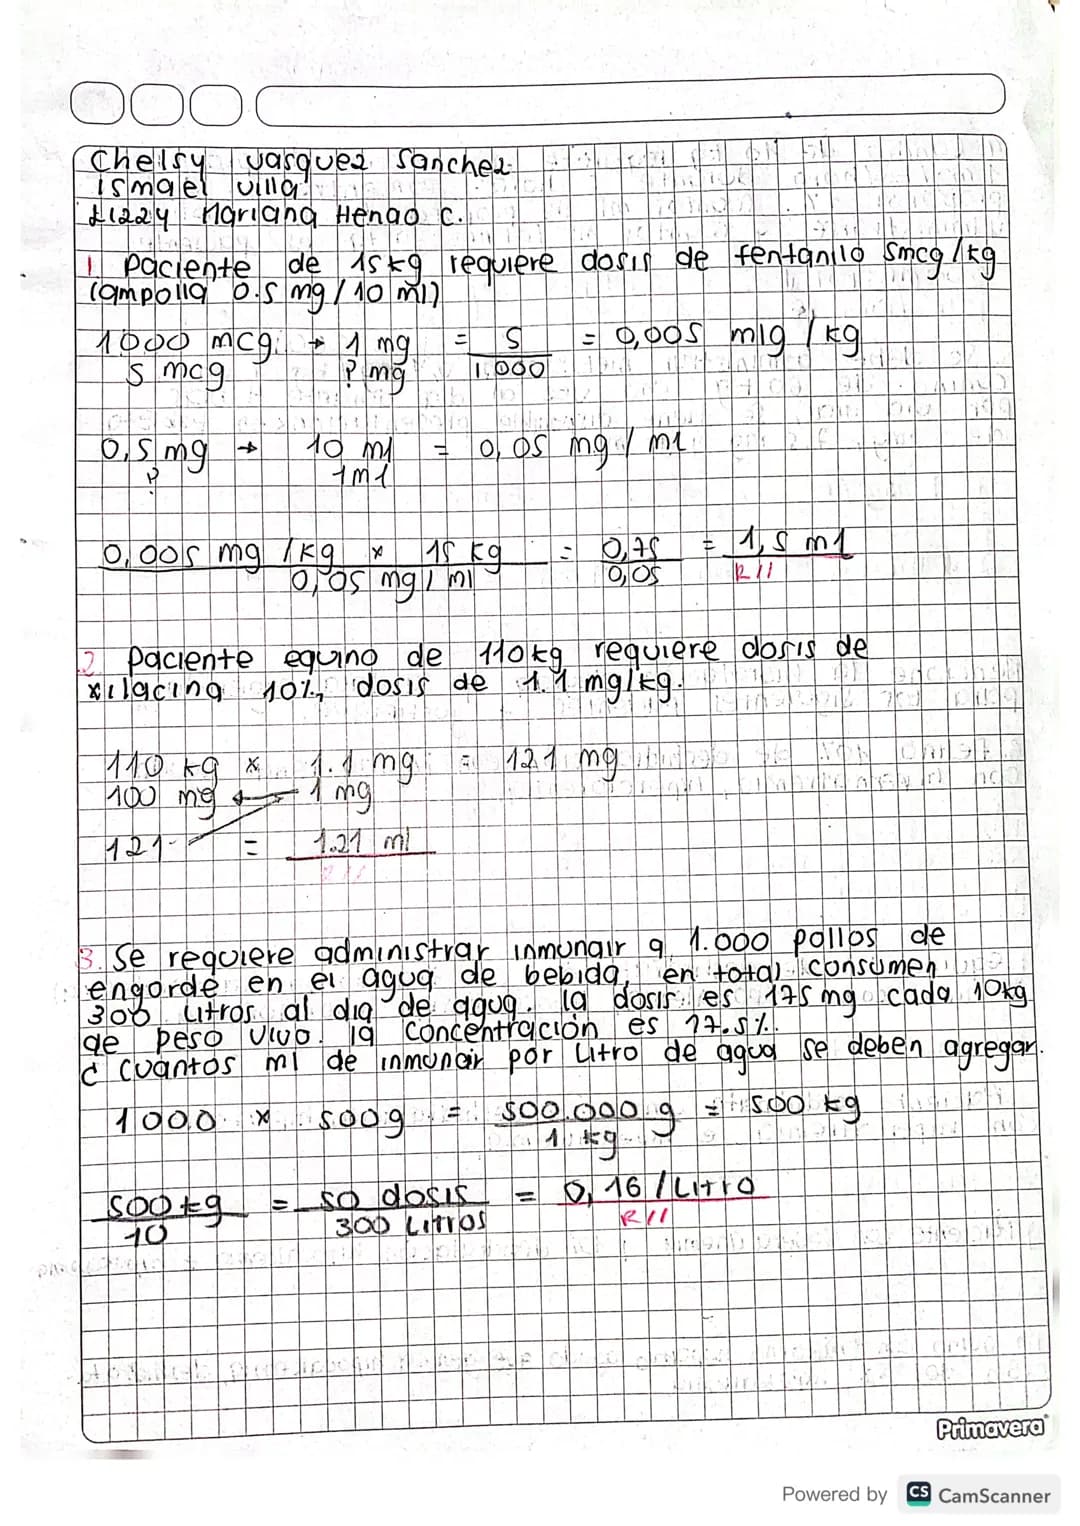 Chelsy vasquez Sanchez
ismael villa
Lizzy Mariana Henao C.
1. Paciente de 15kg requiere dosis de fentanilo 5mcg/kg
(ampolla 0.5 mg / 10 ml)
1000 mcg → 1 mg = 5 = 0,005 mlg / kg
5 mcg ? mg 1.000
0,5 mg → 10 ml = 0,05 mg / ml
? 1ml
0,005 mg /kg x 15 kg = 0,75 = 1,5 ml
0,05 mg / ml 0,05 R//
2. Paciente equino de 110kg requiere dosis de
xilacina 10%, dosis de 1.1 mg/kg.
110 kg x 1.1 mg = 121 mg
100 mg 1 mg
121 = 1.21 ml
R//
3. Se requiere administrar inmunair a 1.000 pollos de
engorde en el agua de bebida, en total consumen
300 Litros al dia de agua. la dosis es 175 mg cada 10kg
de peso vivo. la concentración es 17.5%.
¿ cuantos ml de inmunair por Litro de agua se deben agregar.
1000 x 500g = 500.000 g = 500 kg
1 kg
500 kg = 50 dosis = 0,16 / Litro
10 300 Litros R//
Primavera
Powered by CS CamScanner